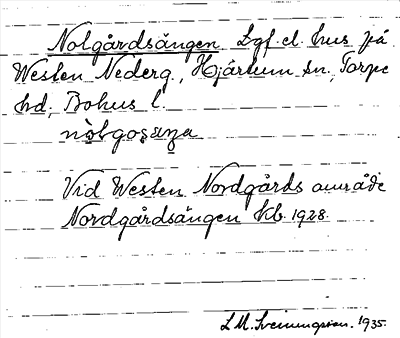 Nolgårdsängen Lgf. el. hus på
Westen Nederg., Hjärtum sn, Torpe
hd, Bohus l.
nòlgoṣæŋa
Vid Westen Nordgårds område
Nordgårdsängen kb 1928.
L M. Sveningsson. 1935.